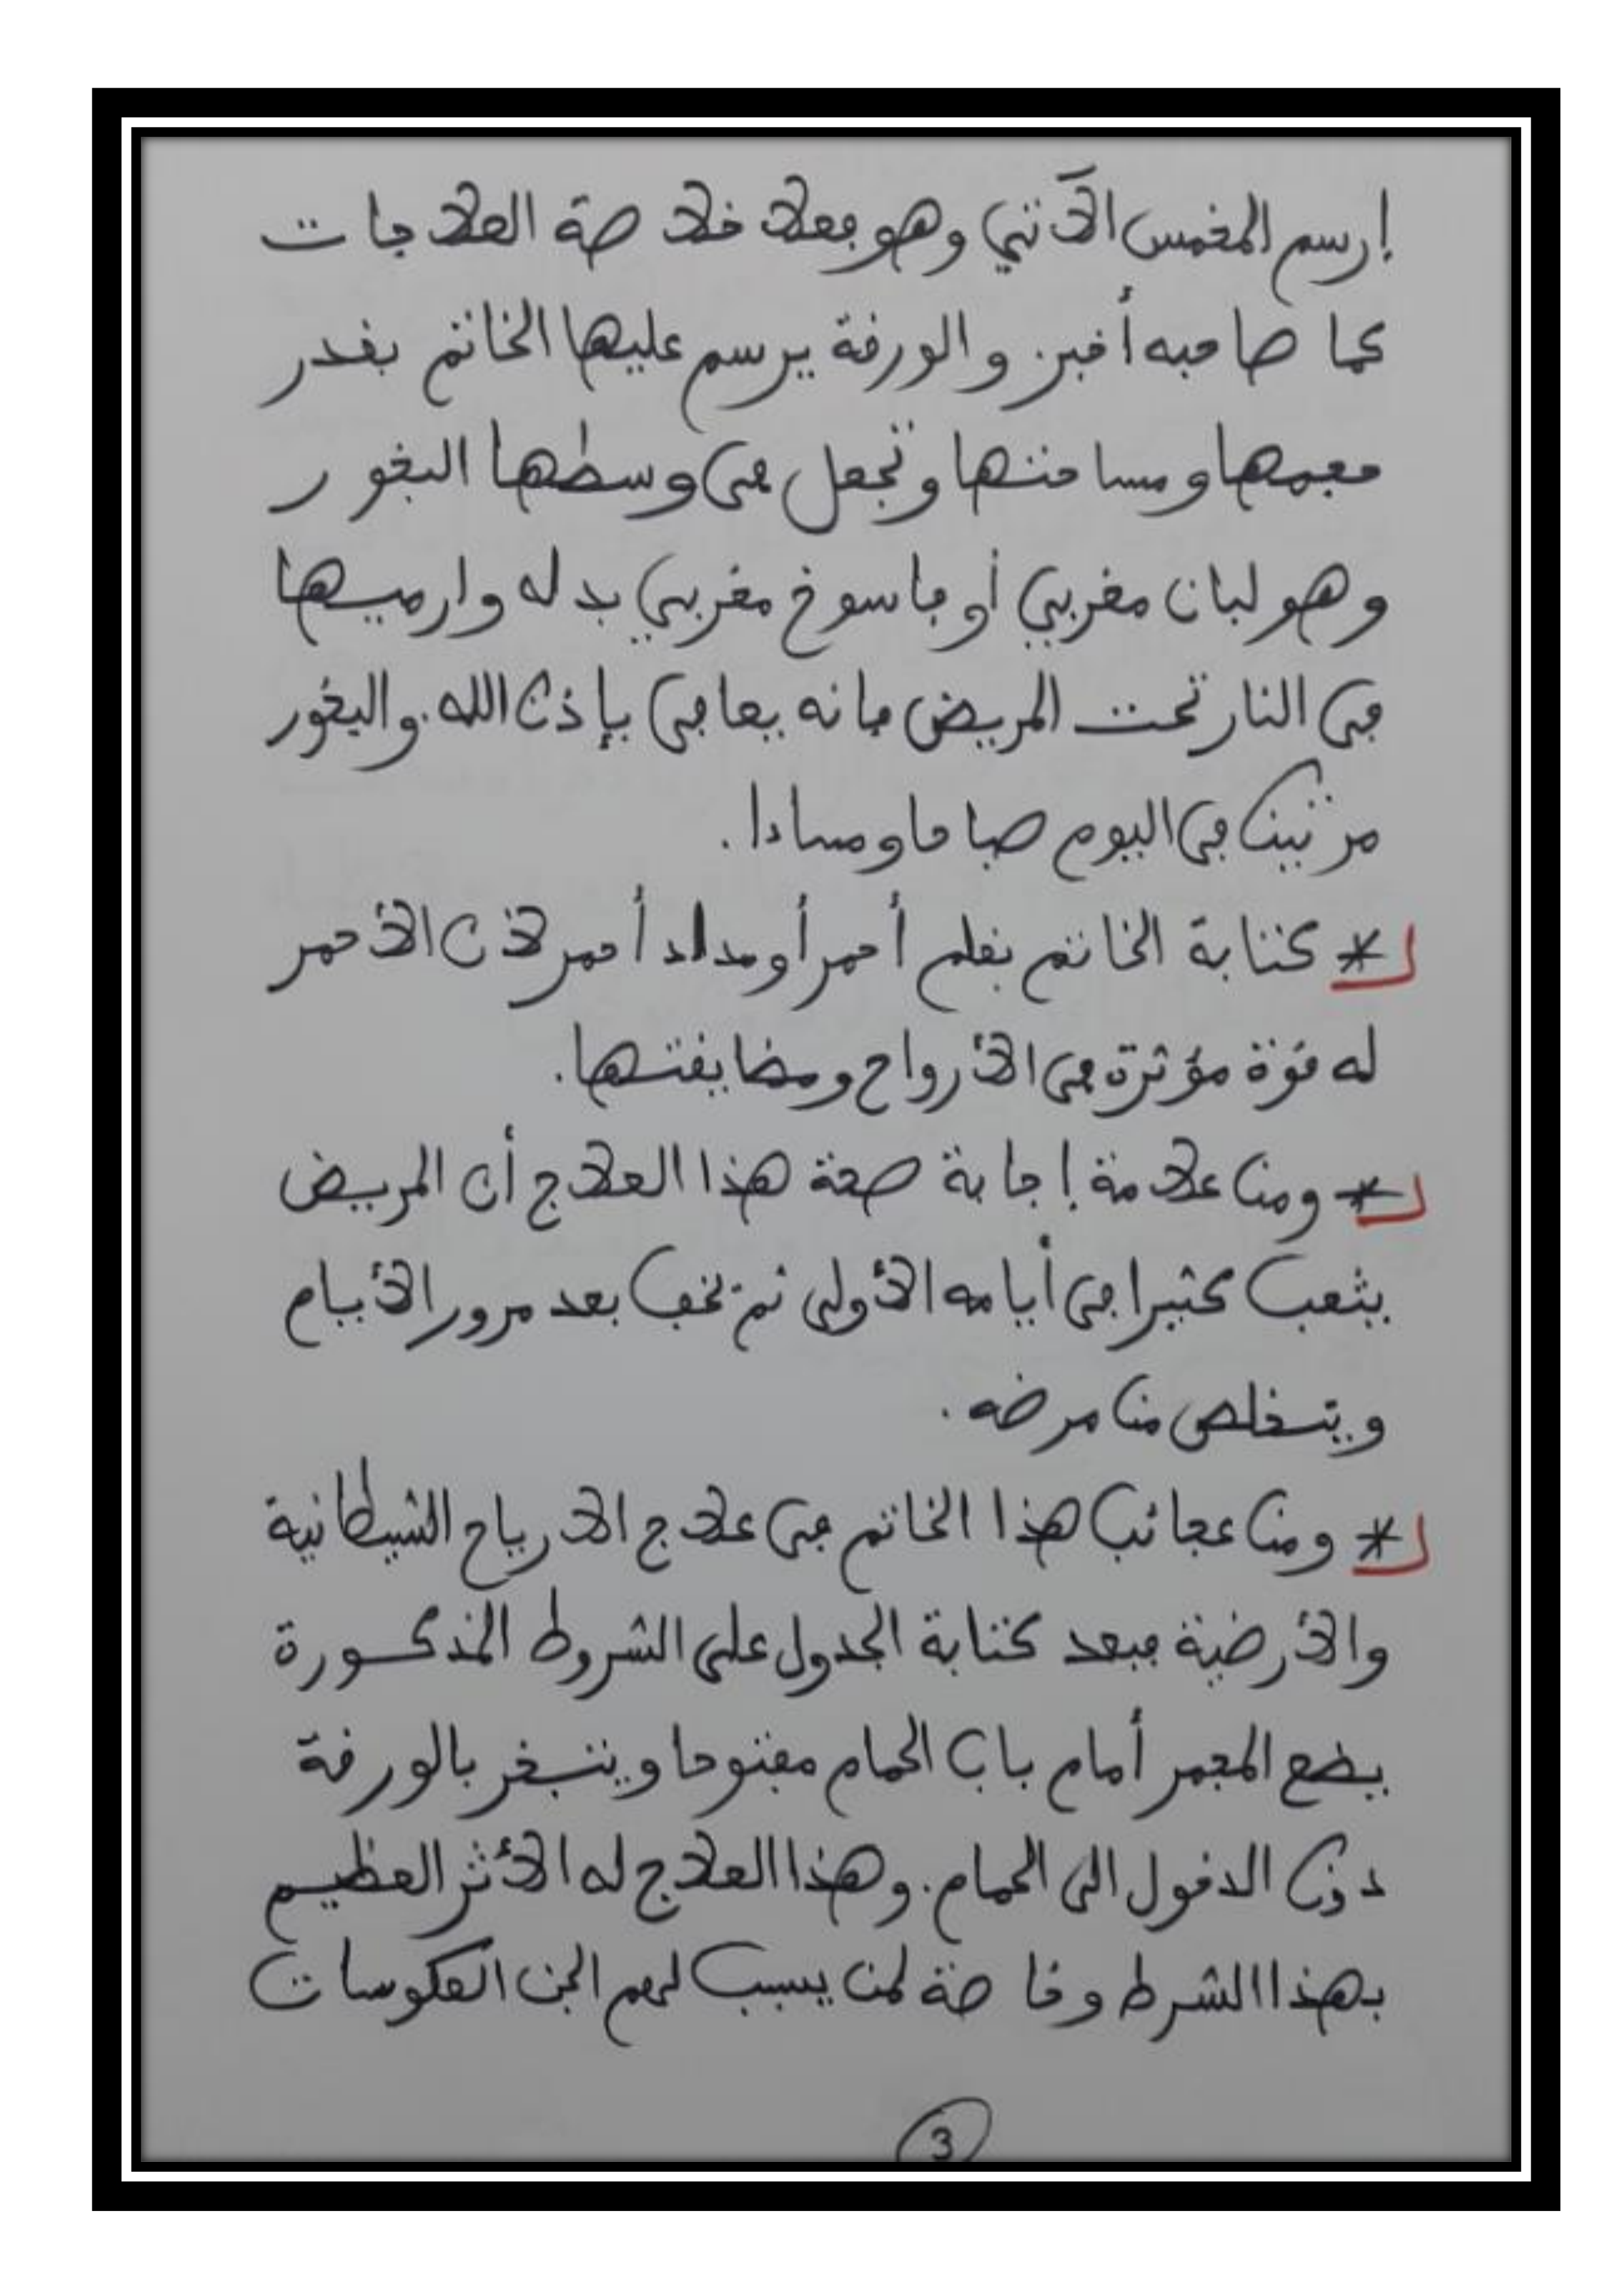 إرسم المخمس الآتي وهو فعلا خلاصة العلاجات
كما صاحبه أخبر. والورقة يرسم عليها الخاتم بقدر
حجمها ومساحتها وتجعل في وسطها البخور
وهو لبان مغربي أو فاسوخ مغربي بدله وارميها
في النار تحت المريض فإنه يعافى بإذن الله. والبخور
مرتين في اليوم صباحا ومساءا.
* كتابة الخاتم بقلم أحمر أو مداد أحمر لأن الأحمر
له قوة مؤثرة في الأرواح ومضايقتها.
* ومن علامة إجابة صحة هذا العلاج أن المريض
يتعب كثيرا في أيامه الأولى ثم تخف بعد مرور الأيام
ويتخلص من مرضه.
* ومن عجائب هذا الخاتم في علاج الارياح الشيطانية
والأرضية فبعد كتابة الجدول على الشروط المذكورة
يضع المجمر أمام باب الحمام مفتوحا ويتبخر بالورقة
دون الدخول الى الحمام. وهذا العلاج له الأثر العظيم
بهذا الشرط وخاصة لمن يسبب لهم الجن العكوسات
3